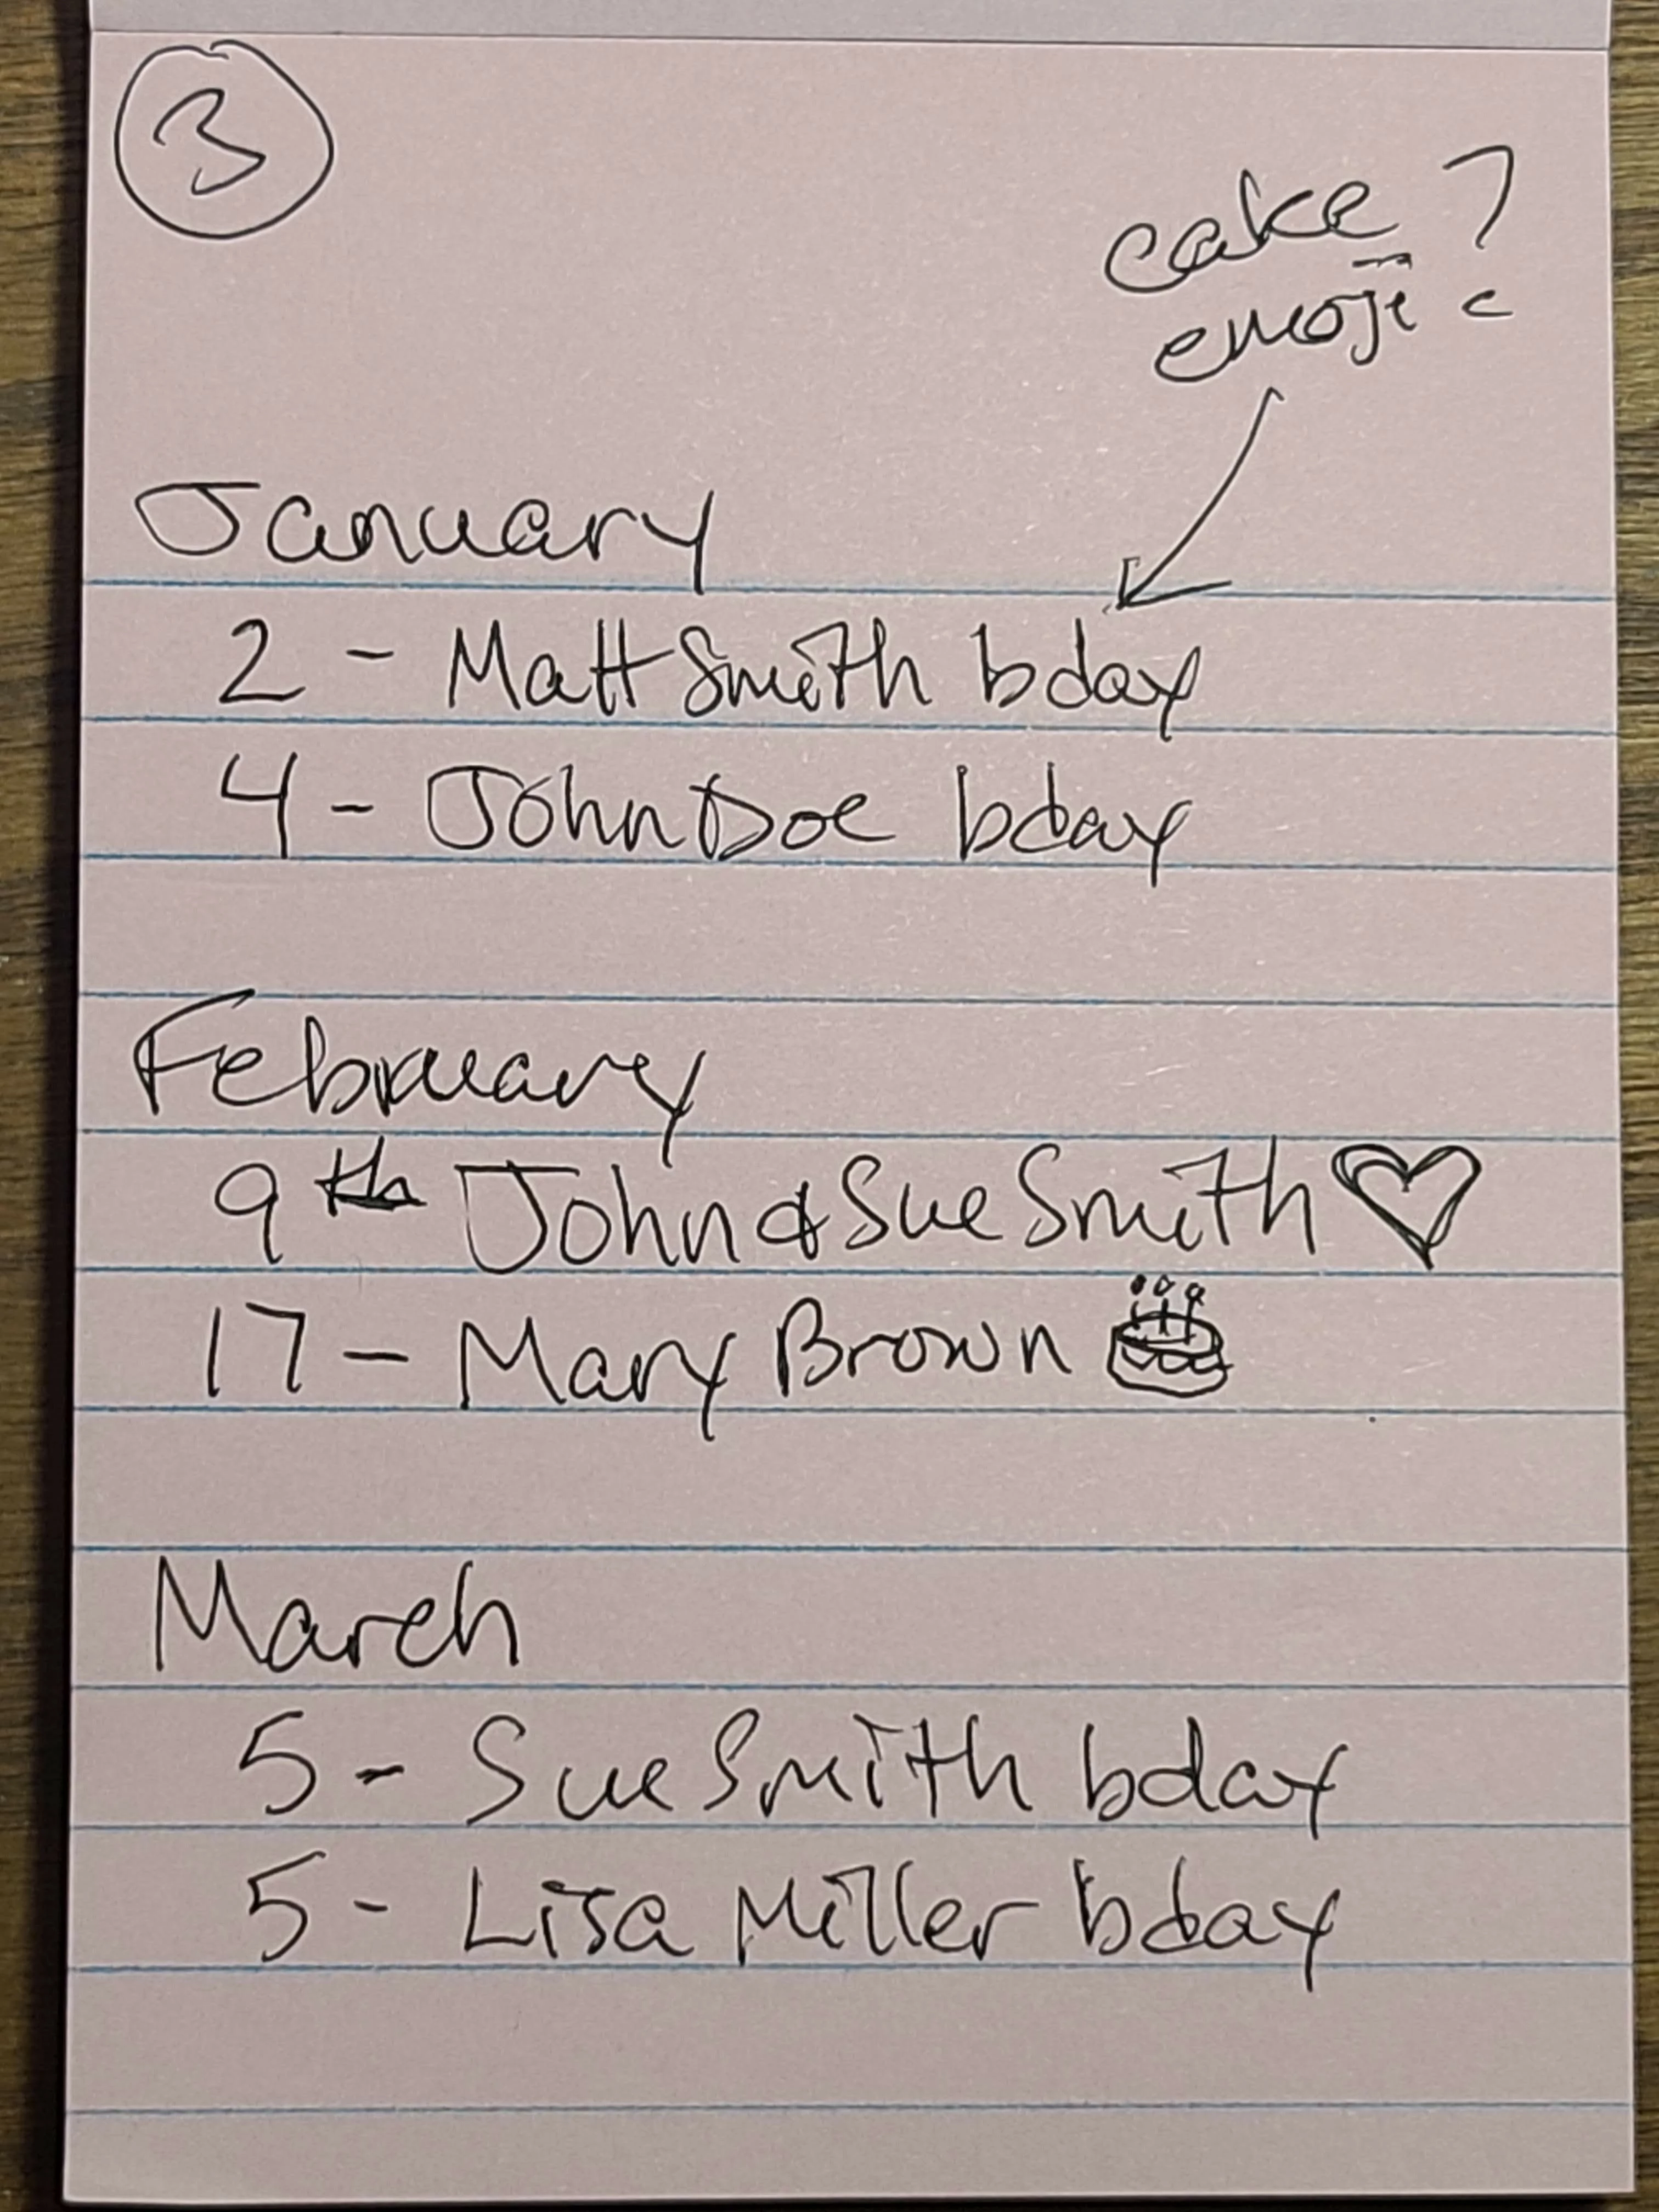 3
cake ?
emoji
January
2 - Matt Smith bday
4 - John Doe bday
February
9th John & Sue Smith ♡
17 - Mary Brown 🎂
March
5 - Sue Smith bday
5 - Lisa Miller bday